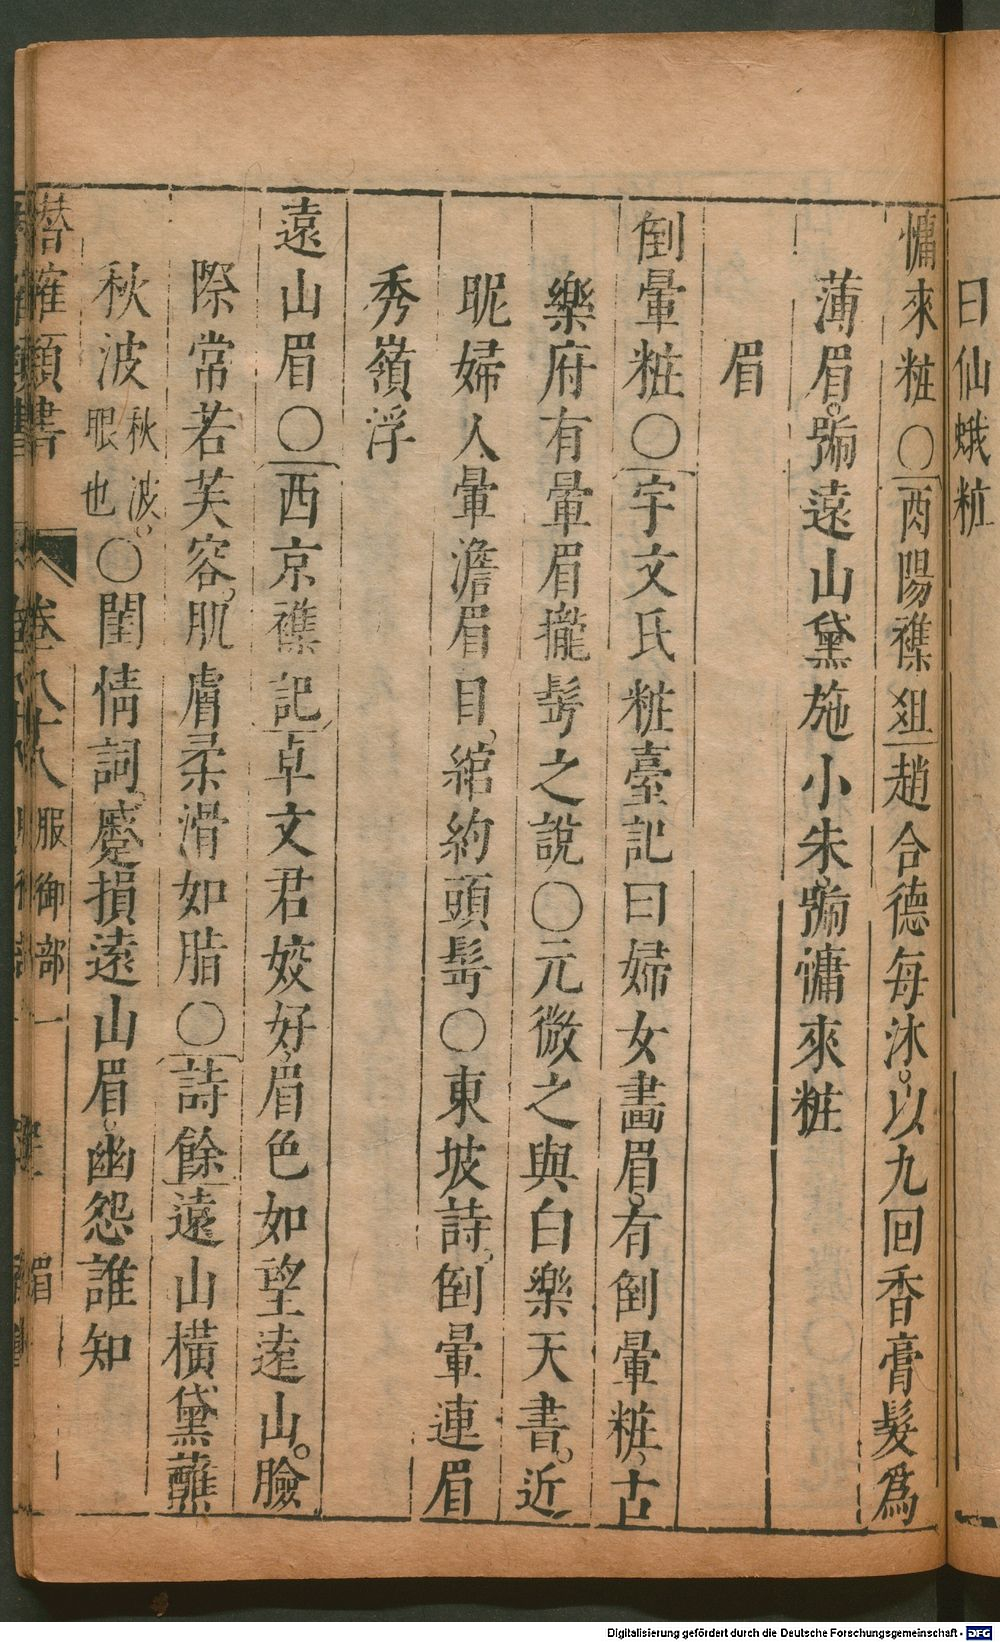 曰仙蛾粧
慵來粧〇酉陽襍俎趙合德每沐以九回香膏髮爲
薄眉號遠山黛施小朱號慵來粧
眉
倒暈粧〇宇文氏粧臺記曰婦女畫眉有倒暈粧古
樂府有暈眉攏髩之說〇元微之與白樂天書近
昵婦人暈澹眉目綰約頭髩〇東坡詩倒暈連眉
秀嶺浮
遠山眉〇西京襍記卓文君姣好眉色如望遠山臉
際常若芙容肌膚柔滑如脂〇詩餘遠山橫黛蘸
秋波秋波眼也〇閨情詞蹙損遠山眉幽怨誰知
類書 卷八十八 服御部一 眉
Digitalisierung gefördert durch die Deutsche Forschungsgemeinschaft - DFG